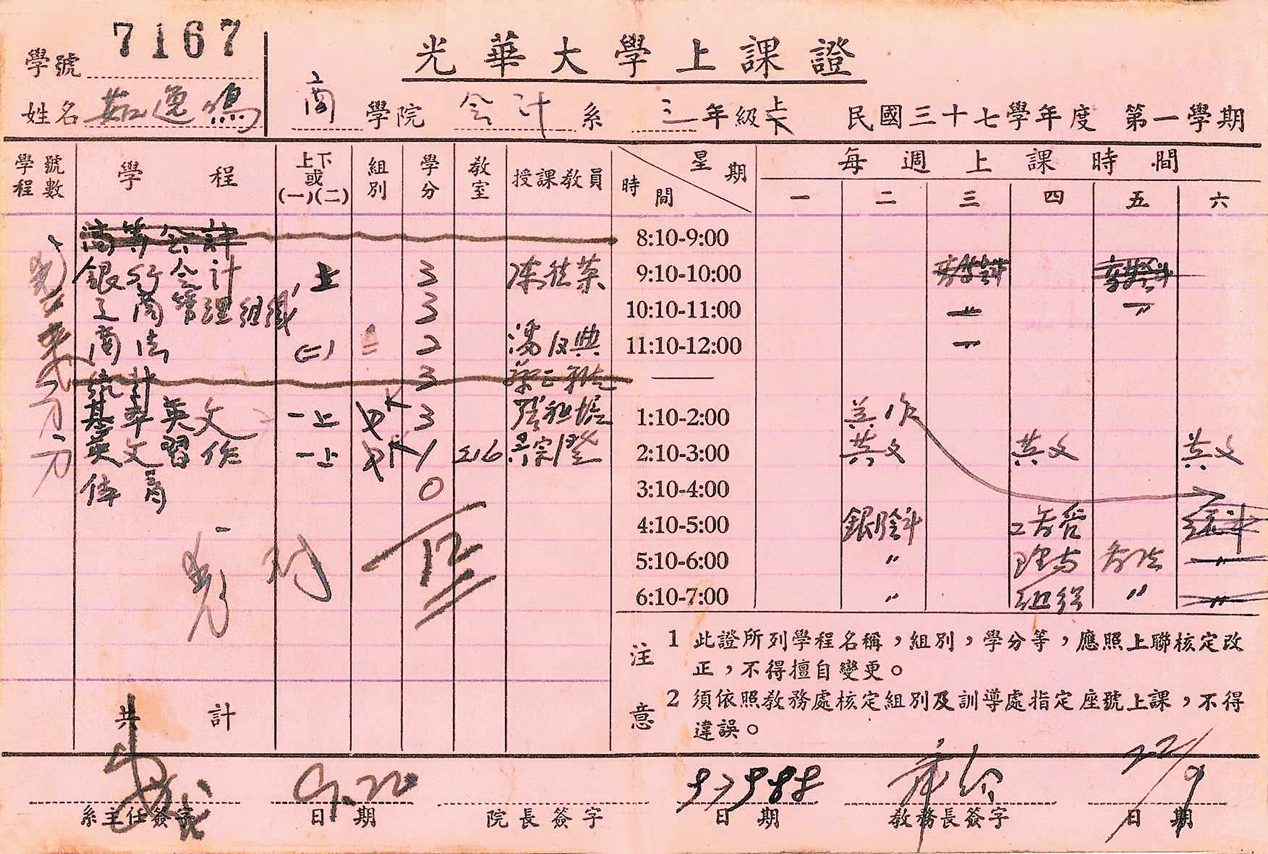 光華大學上課證
學號 7167
姓名 茹逸鳴 商學院 会计系 三年級上 民國三十七學年度 第一學期
學程號數 學程 上下或(一)(二) 組別 學分 教室 授課教員
高等会計
銀行会计 上 3
工商管理組織 3
商法 (二) 2
統計 3
基本英文 一上 K 3
英文習作 一上 K 1 216
体育 0
12
共計
時間 星期 每週上課時間
一 二 三 四 五 六
8:10-9:00
9:10-10:00
10:10-11:00 〃
11:10-12:00
1:10-2:00 英作
2:10-3:00 英文 英文 英文
3:10-4:00
4:10-5:00 統计
5:10-6:00 〃 〃
6:10-7:00 〃 〃 〃
注意
1 此證所列學程名稱，組別，學分等，應照上聯核定改正，不得擅自變更。
2 須依照教務處核定組別及訓導處指定座號上課，不得違誤。
系主任簽字 日期 9.22 院長簽字 日期 教務長簽字 日期 22/9